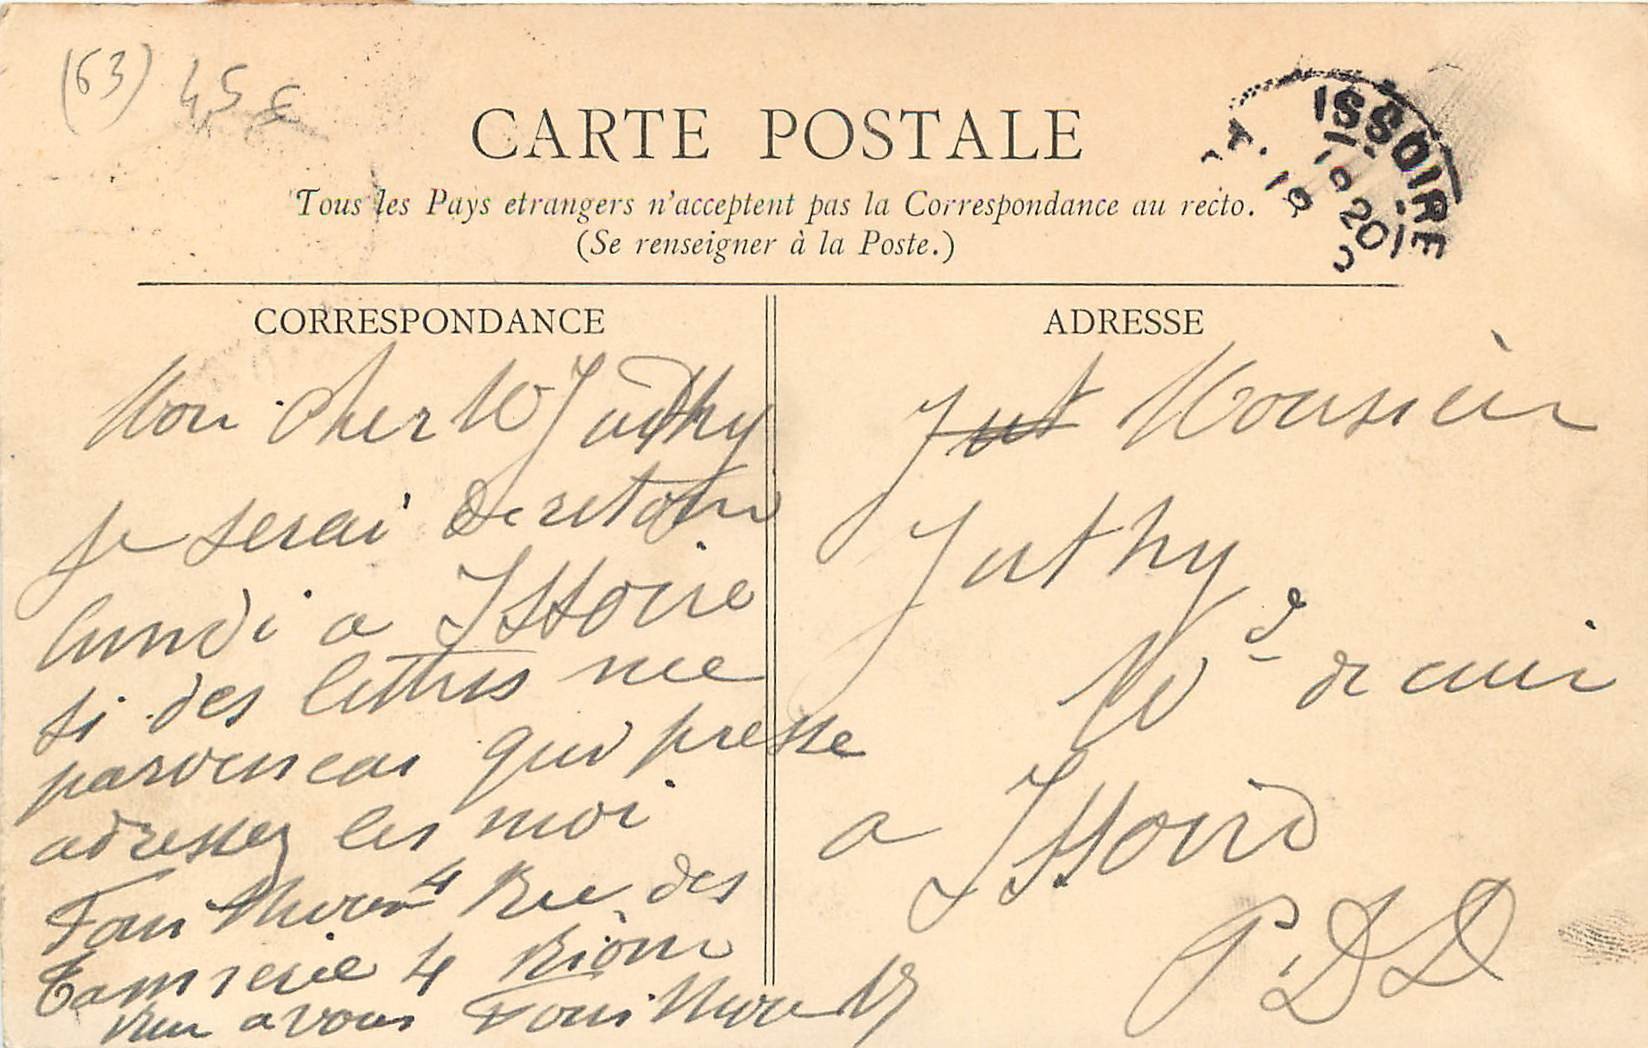 (63) 45 €
CARTE POSTALE
Tous les Pays etrangers n'acceptent pas la Correspondance au recto.
(Se renseigner à la Poste.)
ISSOIRE
CORRESPONDANCE
Mon cher Mr Juthy
je serai de retour
lundi a Issoire
si des lettres me
parveneai qui presse
adressez les moi
4 Rue des
Tannerie 4 Riom
a vous
ADRESSE
Jut Monsieur
Juthy
Md de cuir
a Issoire
P. D D